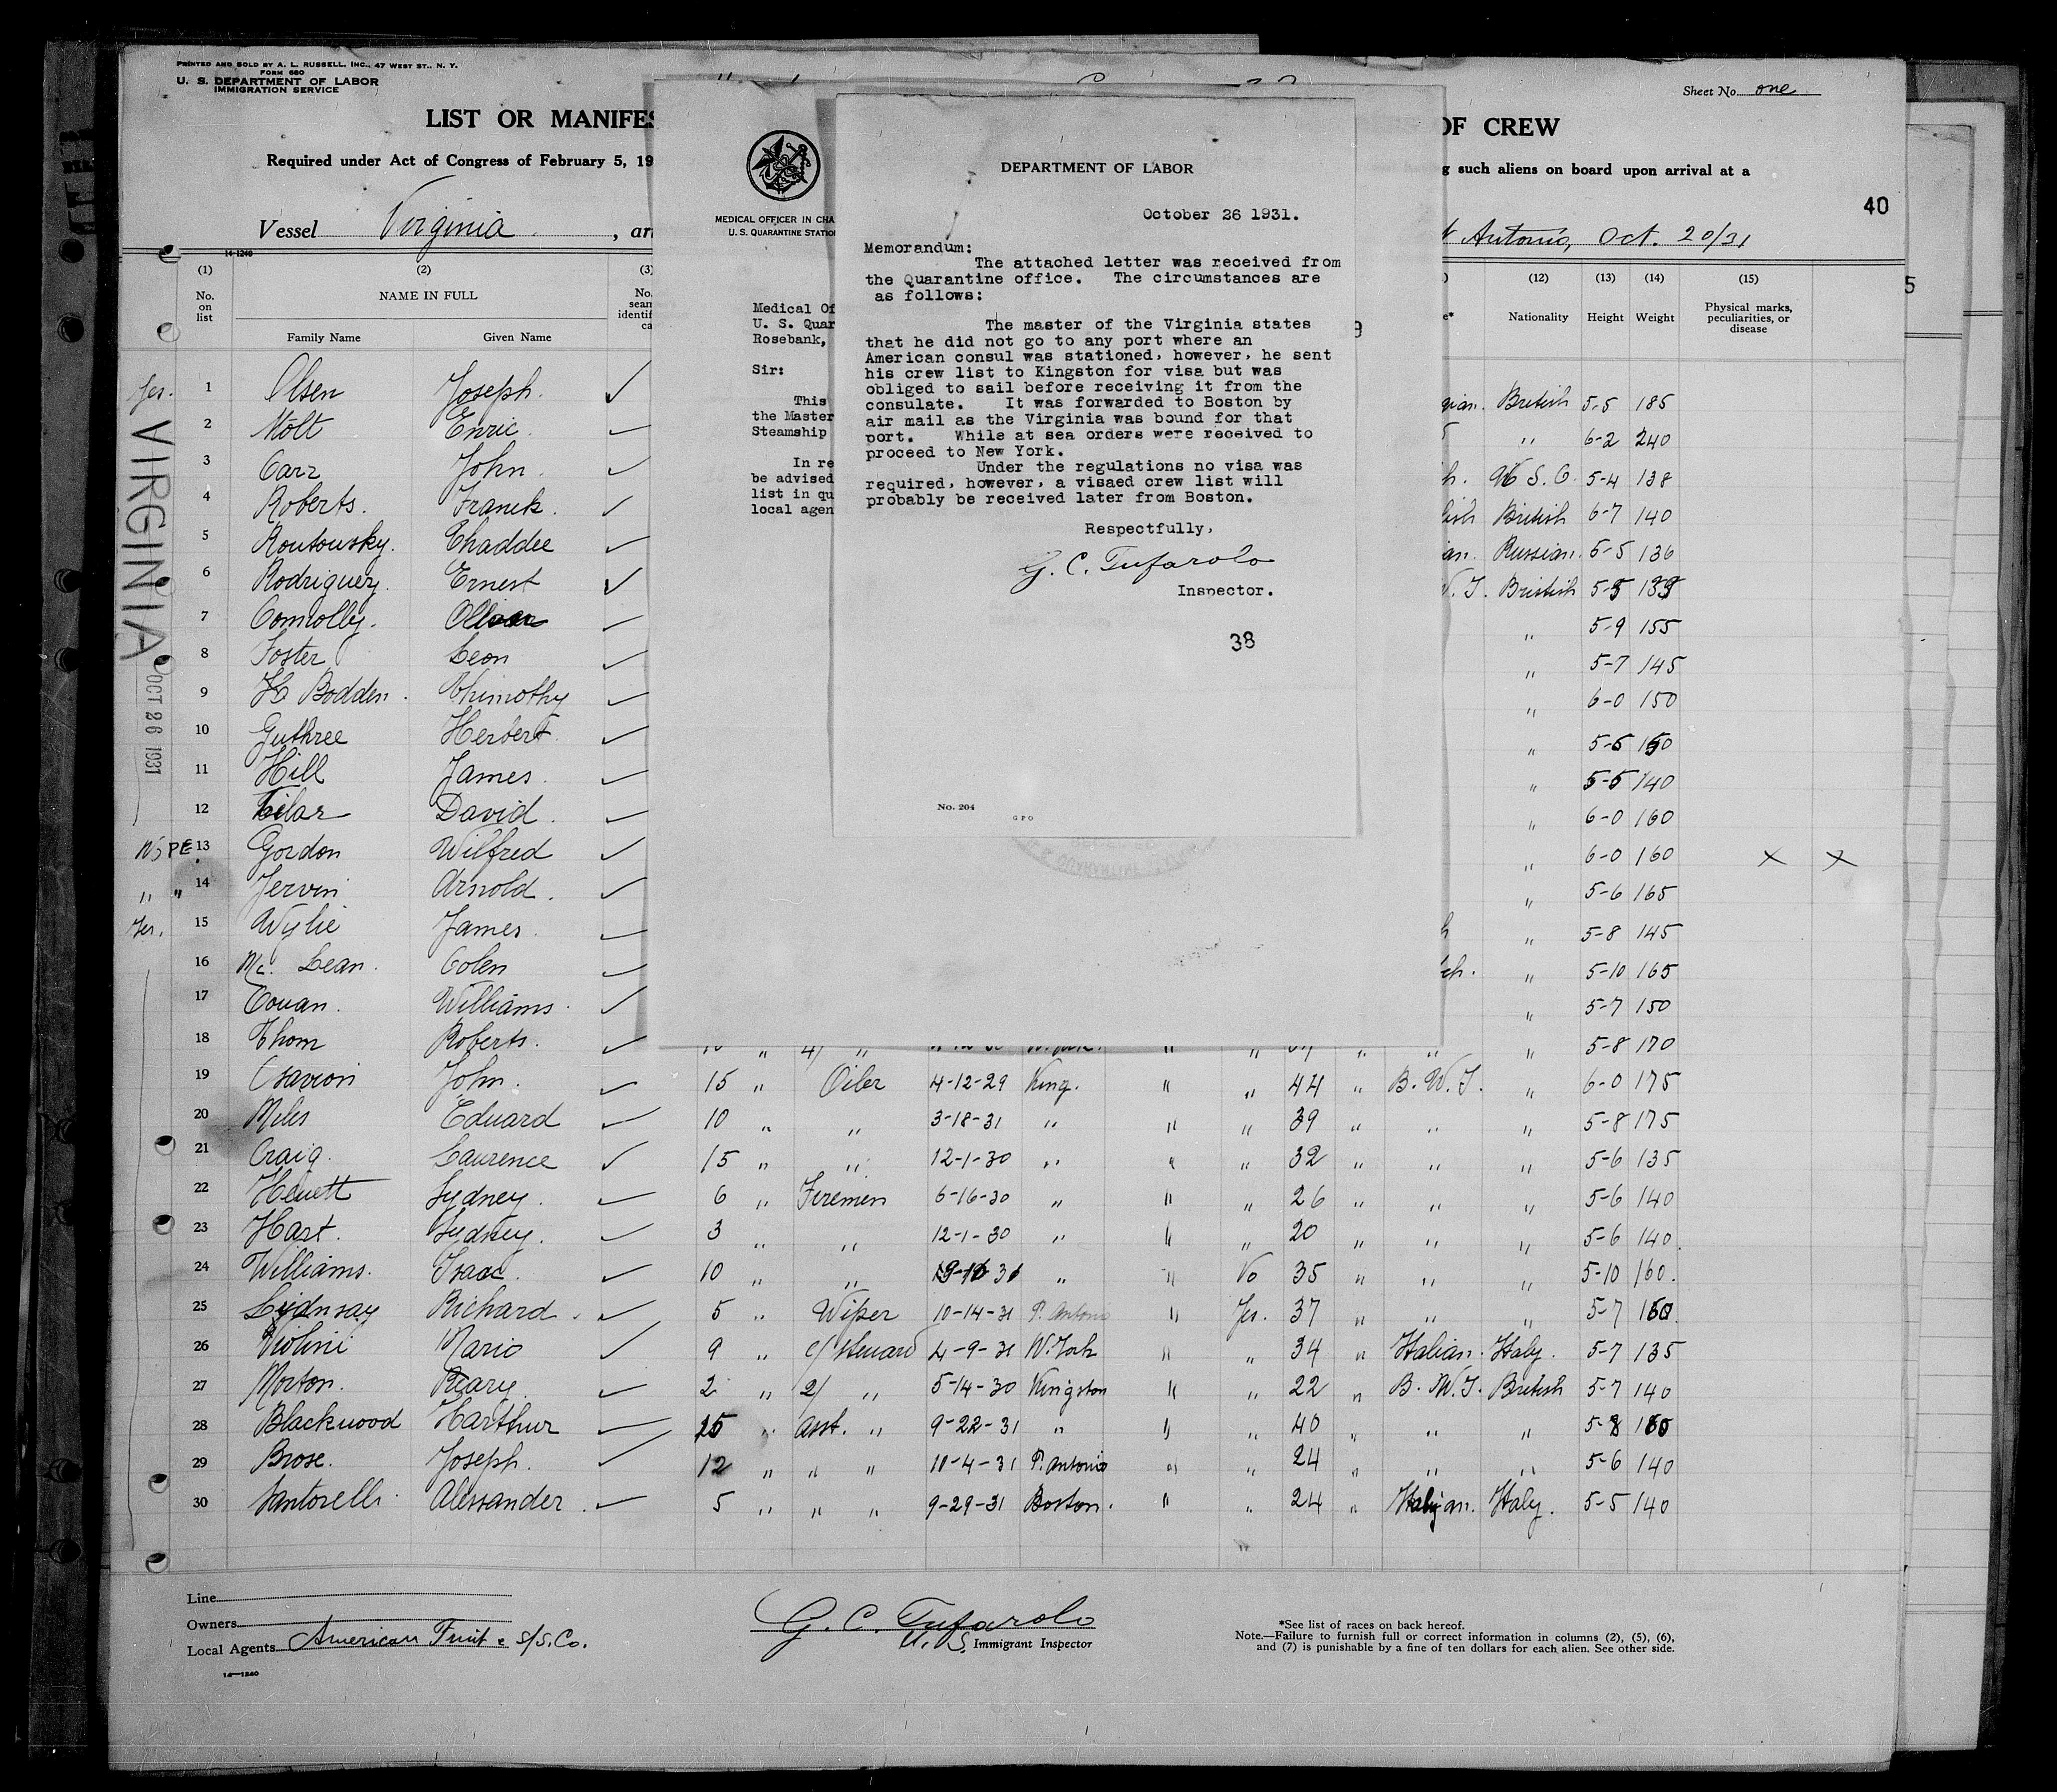 PRINTED AND SOLD BY A. L. RUSSELL, INC., 47 WEST ST., N. Y.
FORM 680
U. S. DEPARTMENT OF LABOR
IMMIGRATION SERVICE
Sheet No. one
LIST OR MANIFES
OF CREW
Required under Act of Congress of February 5, 19
g such aliens on board upon arrival at a
40
Vessel Virginia , arr
Antonio, Oct. 20/31
14-1240
(1) (2) (3) (12) (13) (14) (15)
No. on list
NAME IN FULL
Family Name Given Name
Nationality Height Weight
Physical marks, peculiarities, or disease
5
MEDICAL OFFICER IN CHA
U. S. QUARANTINE STATIO
Medical Of
U. S. Quar
Rosebank,
Sir:
This
the Master
Steamship
In re
be advised
list in qu
local agen
9
DEPARTMENT OF LABOR
October 26 1931.
Memorandum:
The attached letter was received from
the Quarantine office. The circumstances are
as follows:
The master of the Virginia states
that he did not go to any port where an
American consul was stationed, however, he sent
his crew list to Kingston for visa but was
obliged to sail before receiving it from the
consulate. It was forwarded to Boston by
air mail as the Virginia was bound for that
port. While at sea orders were received to
proceed to New York.
Under the regulations no visa was
required, however, a visaed crew list will
probably be received later from Boston.
Respectfully,
G. C. Tufarolo
Inspector.
38
No. 204
GPO
VIRGINIA
OCT 26 1931
Yes. 1 Olsen Joseph. British 5-5 185
2 Nolt Enric. " 6-2 240
3 Carr John. U S. C. 5-4 138
4 Roberts. Franck. British 6-7 140
5 Routousky. Thaddee Russian. 5-5 136
6 Rodriguez. Ernest British 5-5
7 Connolly. " 5-9 155
8 Foster Leon " 5-7 145
9 H Bodden. Thimothy " 6-0 150
10 Guthree Herbert " 5-5 150
11 Hill James. " 5-5 140
12 David. " 6-0 160
13 Gordon Wilfred " 6-0 160 X X
" " 14 Jervin Arnold. " 5-6 165
Yes. 15 Wylie James. " 5-8 145
16 Mc. Lean. Colen " 5-10 165
17 Couan. Williams. " 5-7 150
18 Thom Roberts. " 5-8 170
19 John. 15 " Oiler 4-12-29 King. " " 44 " B. W. I. " 6-0 175
20 Miles Eduard 10 " " 3-18-31 " " " 39 " " " 5-8 175
21 Craig. Laurence 15 " " 12-1-30 " " " 32 " " " 5-6 135
22 Heuett Sydney. 6 " Firemen 6-16-30 " " " 26 " " " 5-6 140
23 Hart. Sydney. 3 " " 12-1-30 " " " 20 " " " 5-6 140.
24 Williams. Isaac. 10 " " " " No 35 " " " 5-10 160.
25 Richard. 5 " Wiper 10-14-31 P. Antonio " Yes. 37 " " " 5-7 150.
26 Violini Mario 9 " c/ Steuard 4-9-31 N. York " " 34 " Italian. Italy. 5-7 135
27 Morton. 2 " 2/ " 5-14-30 Kingston " " 22 " B. W. I. British 5-7 140
28 Blackwood Harthur 15 " asst. " 9-22-31 " " " 40 " " " 5-8
29 Brose. Joseph. 12 " " " 10-4-31 P. Antonio " " 24 " " " 5-6 140
30 Santorelli. Alessander. 5 " " " 9-29-31 Boston. " " 24 " Italian. Italy. 5-5 140
Line
Owners
Local Agents American Fruit & S/S. Co.
14-1240
G. C. Tufarolo
U. S. Immigrant Inspector
*See list of races on back hereof.
Note.—Failure to furnish full or correct information in columns (2), (5), (6),
and (7) is punishable by a fine of ten dollars for each alien. See other side.